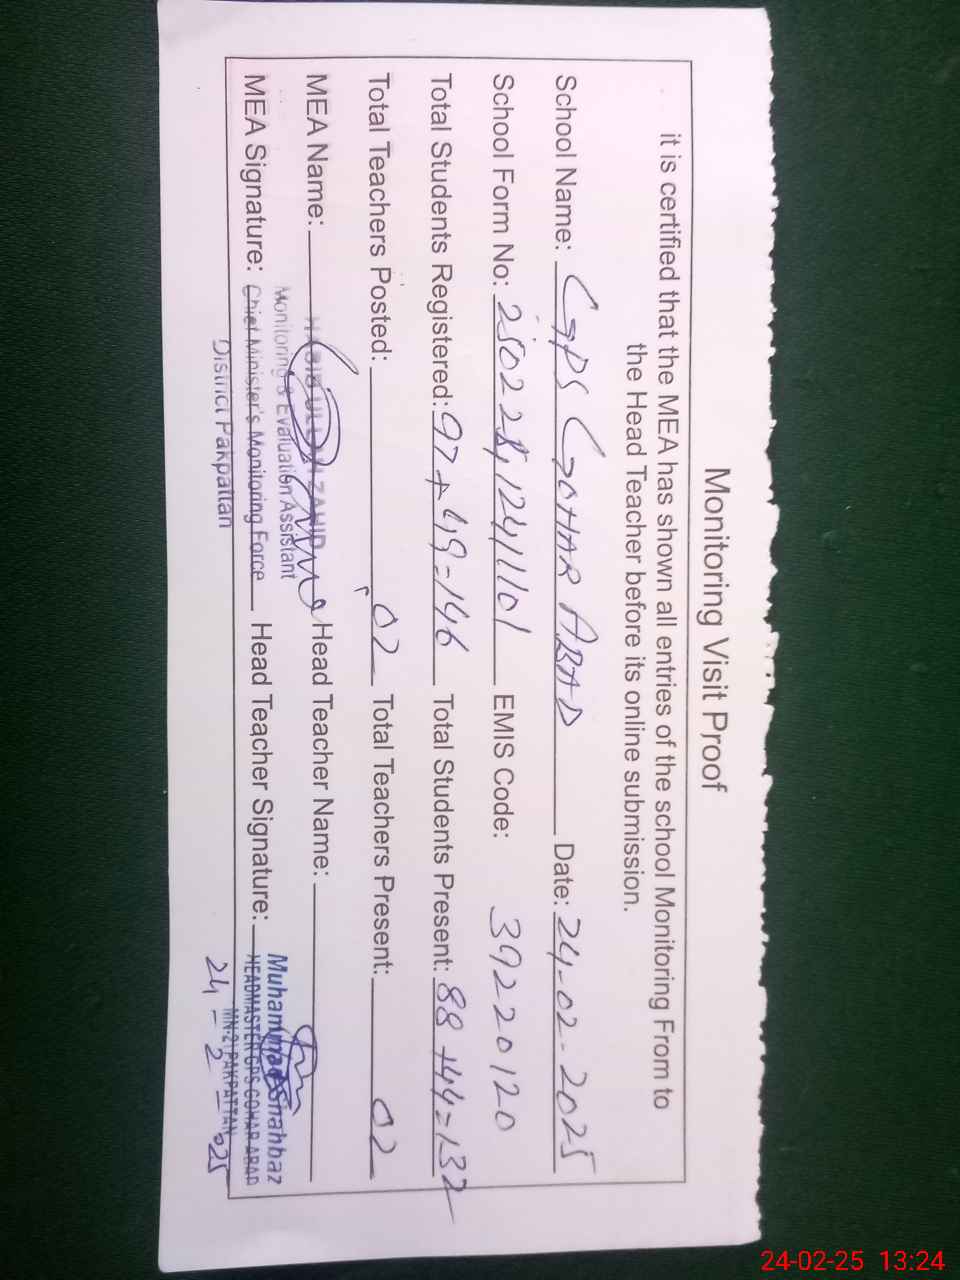 Monitoring Visit Proof
it is certified that the MEA has shown all entries of the school Monitoring From to
the Head Teacher before its online submission.
School Name: GPS GOHAR ABAD Date: 24-02-2025
School Form No: 25022812411101 EMIS Code: 39220120
Total Students Registered: 97+49=146 Total Students Present: 88+44=132
Total Teachers Posted: 02 Total Teachers Present: 02
MEA Name: HABIB ULLAH ZAHID Head Teacher Name:
Monitoring & Evaluation Assistant
MEA Signature: Chief Minister's Monitoring Force Head Teacher Signature: Muhammad Shahbaz
District Pakpattan
HEADMASTER GPS GOHAR ABAD
MN-2) PAKPATTAN
24-2-025
24-02-25 13:24